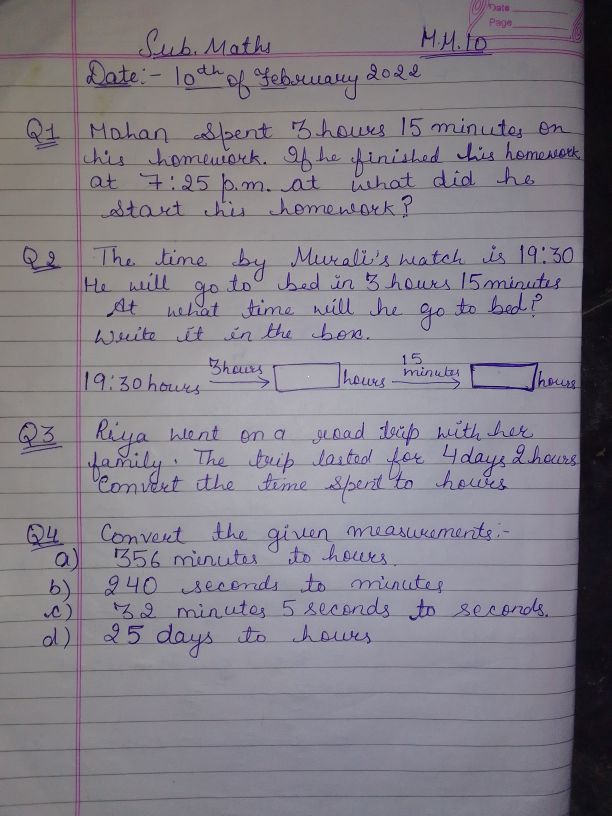 Date
Page
Sub. Maths M.M. 10
Date:- 10th of February 2022
Q1 Mohan spent 3 hours 15 minutes on
his homework. If he finished his homework
at 7:25 p.m. at what did he
start his homework?
Q2 The time by Murali's watch is 19:30
He will go to bed in 3 hours 15 minutes
At what time will he go to bed?
Write it in the box.
19:30 hours 3hours hours 15 minutes hours
Q3 Riya went on a road trip with her
family. The trip lasted for 4 days 2 hours
Convert the time spent to hours
Q4 Convert the given measurements:-
a) 356 minutes to hours.
b) 240 seconds to minutes
c) 32 minutes 5 seconds to seconds.
d) 25 days to hours